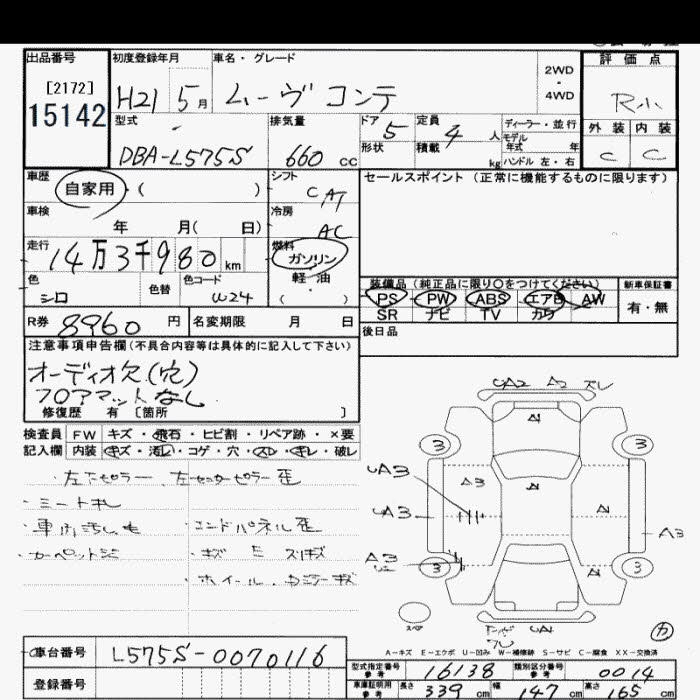 出品番号
[2172]
15142
初度登録年月
H21 5月
車名・グレード
ムーヴ コンテ
2WD
・
4WD
評価点
R小
外装 内装
C C
型式
DBA-L575S
排気量
660 cc
ドア 5
形状
定員 4 人
積載 kg
ディーラー・並行
モデル
年式 年
ハンドル 左・右
車歴
自家用・( )
シフト
C AT
セールスポイント (正常に機能するものに限ります)
車検
年 月( 日)
冷房
AC
走行
14万3千980 km
燃料
ガソリン
軽・油
( )
色
シロ
色替
色コード
W24
装備品 (純正品に限り○をつけてください)
PS PW ABS エアB AW
SR ナビ TV カワ
新車保証書
有・無
R券 8960 円
名変期限 月 日
後日品
注意事項申告欄(不具合内容等は具体的に記入して下さい)
オーディオ欠(穴)
フロアマットなし
修復歴 有 [箇所 ]
検査員 FW キズ・飛石・ヒビ割・リペア跡・×要
記入欄 内装 キズ・汚レ・コゲ・穴・スレ・キレ・破レ
左センターピラー歪
エンドパネル歪
UA2 A2 スレ
3 3
UA3 A3
UA3
A3
A3
3 3
スペア
UA1
A-キズ E-エクボ U-凹み W-補修跡 S-サビ C-腐食 XX-交換済
車台番号 L575S-0070116
登録番号
型式指定番号
参考
16138
類別区分番号
参考
0014
車庫証明用
参考
長さ 339 cm 幅 147 cm 高さ 165 cm